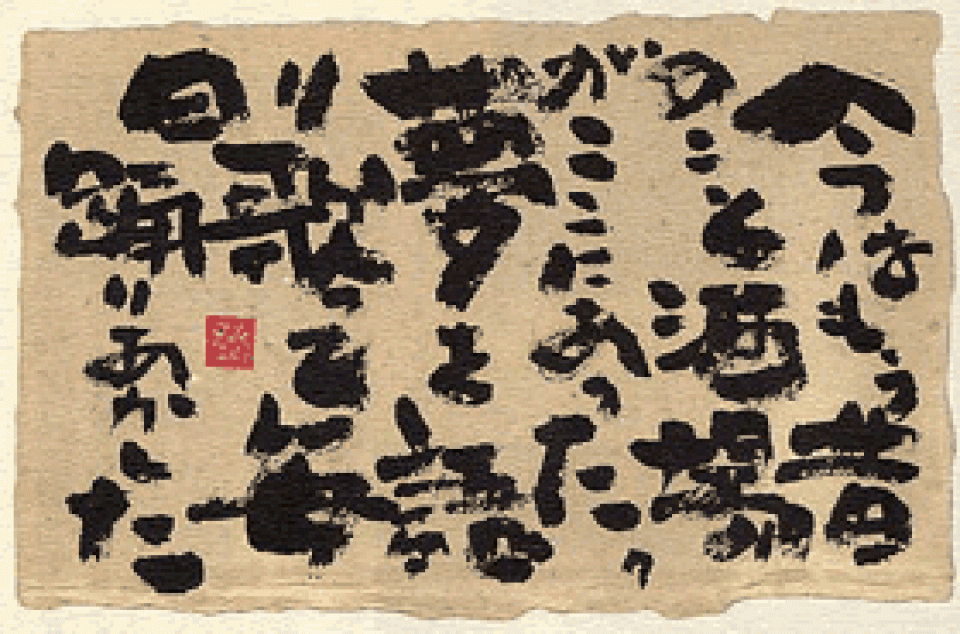 今ではもう昔
のこと酒場
がここにあった。
夢を語
り歌って毎
日踊りあかした